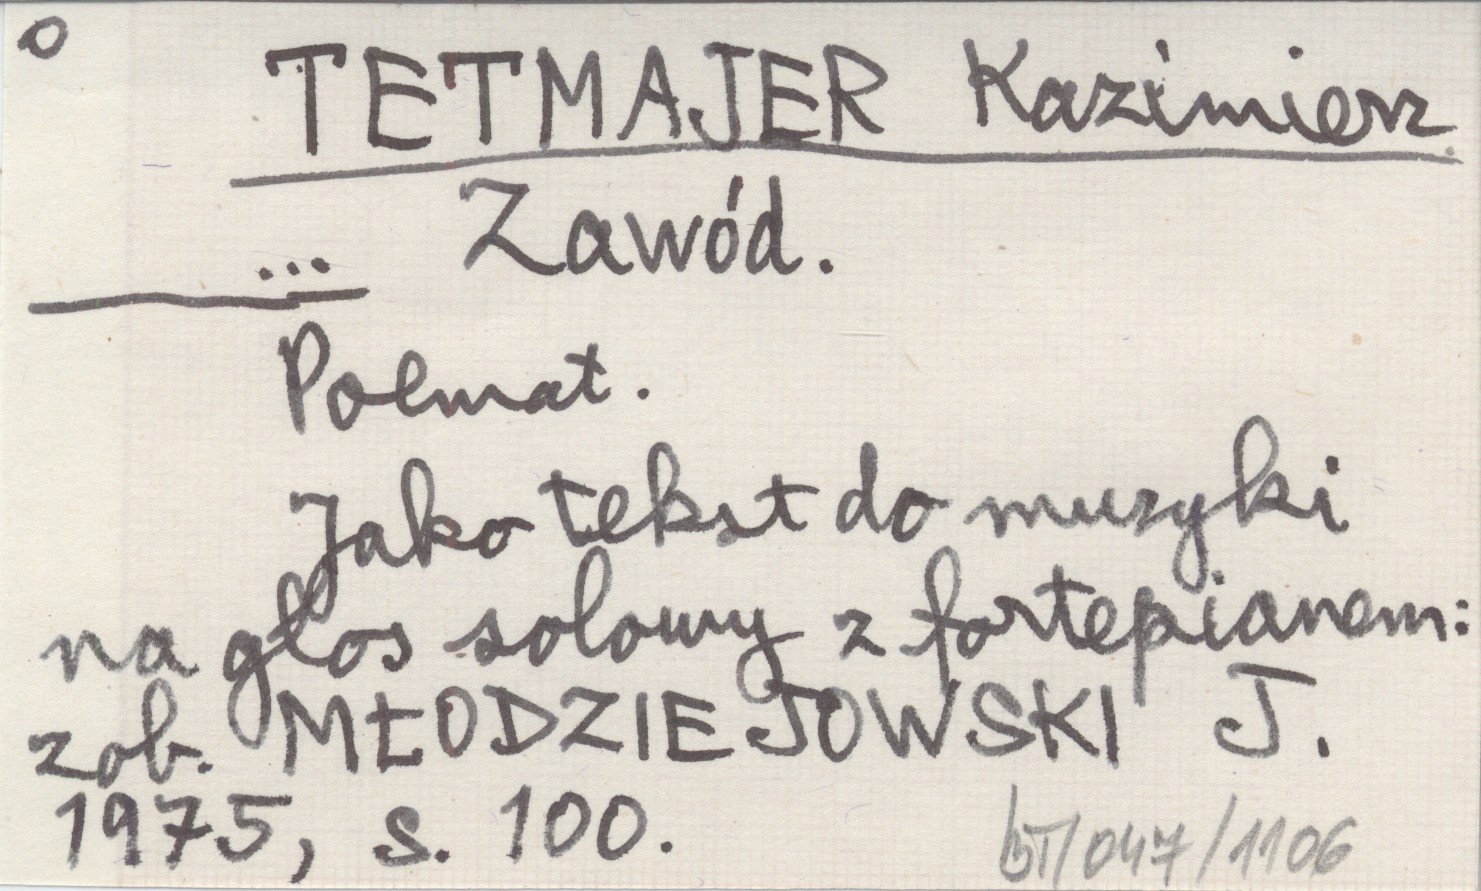 o
TETMAJER Kazimierz
... Zawód.
Poemat.
Jako tekst do muzyki
na głos solowy z fortepianem:
zob. MŁODZIEJOWSKI J.
1975, s. 100.
bT/047/1106